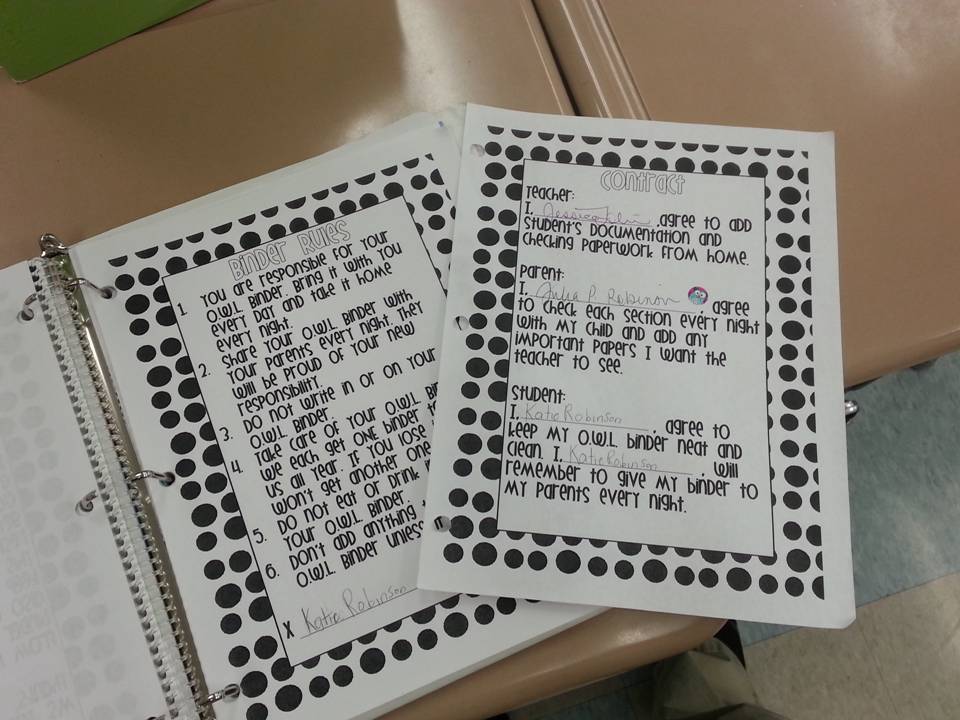 BINDER RULES
1. YOU ARE RESPONSIBLE FOR YOUR
O.W.L. BINDER. BRING IT WITH YOU
EVERY DAY AND TAKE IT HOME
EVERY NIGHT.
2. SHARE YOUR O.W.L. BINDER WITH
YOUR PARENTS EVERY NIGHT. THEY
WILL BE PROUD OF YOUR NEW
RESPONSIBILITY.
3. DO NOT WRITE IN OR ON YOUR
O.W.L. BINDER.
4. TAKE CARE OF YOUR O.W.L. BI
WE EACH GET ONE BINDER
US ALL YEAR. IF YOU LOSE
WON'T GET ANOTHER ONE
5. DO NOT EAT OR DRINK
YOUR O.W.L. BINDER.
6. DON'T ADD ANYTHING
O.W.L. BINDER UNLESS
X Katie Robinson
CONTRACT
TEACHER:
I, Jessica , AGREE TO ADD
STUDENT'S DOCUMENTATION AND
CHECKING PAPERWORK FROM HOME.
PARENT:
I, Julia P. Robinson , AGREE
TO CHECK EACH SECTION EVERY NIGHT
WITH MY CHILD AND ADD ANY
IMPORTANT PAPERS I WANT THE
TEACHER TO SEE.
STUDENT:
I, Katie Robinson , AGREE TO
KEEP MY O.W.L. BINDER NEAT AND
CLEAN. I, Katie Robinson , WILL
REMEMBER TO GIVE MY BINDER TO
MY PARENTS EVERY NIGHT.